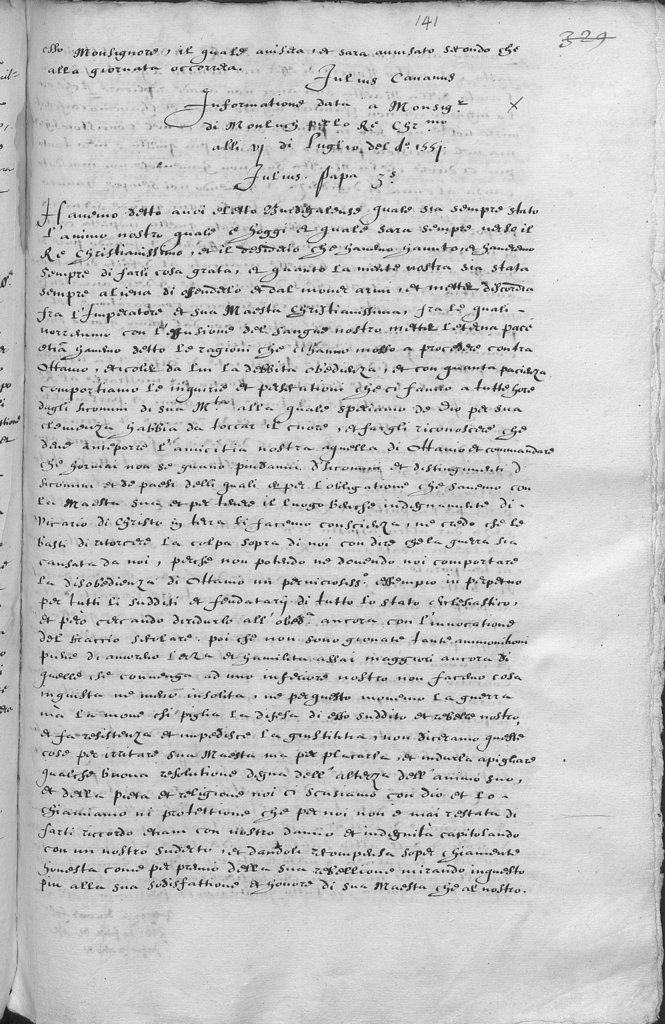 141
329
esso Monsignore, il quale avisera, et sara avvisato secondo che
alla giornata occorrera.
Julius Cananus
Informatione data a Monsig.r
di Monluch per lo Re Chr.mo
alli vj di Luglio del de 1551.
Julius Papa 3.s
Havemo detto anci eletto Burdigalense quale sia sempre stato
l'animo nostro quale e hoggi et quale sara sempre verso il
Re Christianissimo, et il desiderio che havemo havuto, et haveremo
sempre di farli cosa grata, et quanto la mente nostra sia stata
sempre aliena di offenderlo et dal mover armi, et metter discordia
fra l'Imperatore et sua Maesta Christianissima, fra le quali
vorriamo con l'effusione del sangue nostro metter l'eterna pace
etia havemo detto le ragioni che ci hanno mosso a procedere contra
Ottavio, et da lui la debbita obedienza, et con quanta pacienza
comportiamo le ingiurie et che ci fanno a tutte hore
dagli di sua M.ta alla quale speriamo de Dio per sua
clemenza habbia da toccar il cuore, et fargli riconoscere che
deve anteporre l'amicitia nostra a quella di Ottavio et commandare
che hormai non se
et de paesi delli quali et per l'obligatione che havemo con
la Maesta sua et per tenere il luogo benche indignamente di
Vicario di Christo in terra li facemo conscienza, ne credo che le
basti di ritorcere la colpa sopra di noi con dire che la guerra sia
causata da noi, perche non potendo ne dovendo noi comportare
la disobedienza di Ottavio un pernicioso essempio in perpetuo
per tutti li sudditi et feudatarij di tutto lo stato ecclesiastico,
et pero cercando ridurlo all'obed.a ancora con l'invocatione
del braccio secolare. poi che non sono giovate tante ammonitioni
piene di amorevolezza et humilita assai maggiori ancora di
quelle che convenga ad uno inferiore nostro non facemo cosa
ingiusta ne meno insolita, ne per questo movemo la guerra
ma la move chi piglia la difesa di esso suddito et rebelle nostro,
et fa resistenza et impedisce la giustitia, non diceamo queste
cose per irritare sua Maesta ma per placarla, et indurla a pigliare
qualche buona resolutione degna dell'altezza dell'animo suo,
et della pieta et religione noi ci scusiamo con Dio et lo
chiamiamo in protettione che per noi non e mai restata di
farti riccordo etiam con nostro danno et indignita capitolando
con un nostro suddito, et dandoli recompensa soperchiamente
honesta come per premio della sua rebellione mirando in questo
piu alla sua sodisfattione et honore di sua Maesta che al nostro.